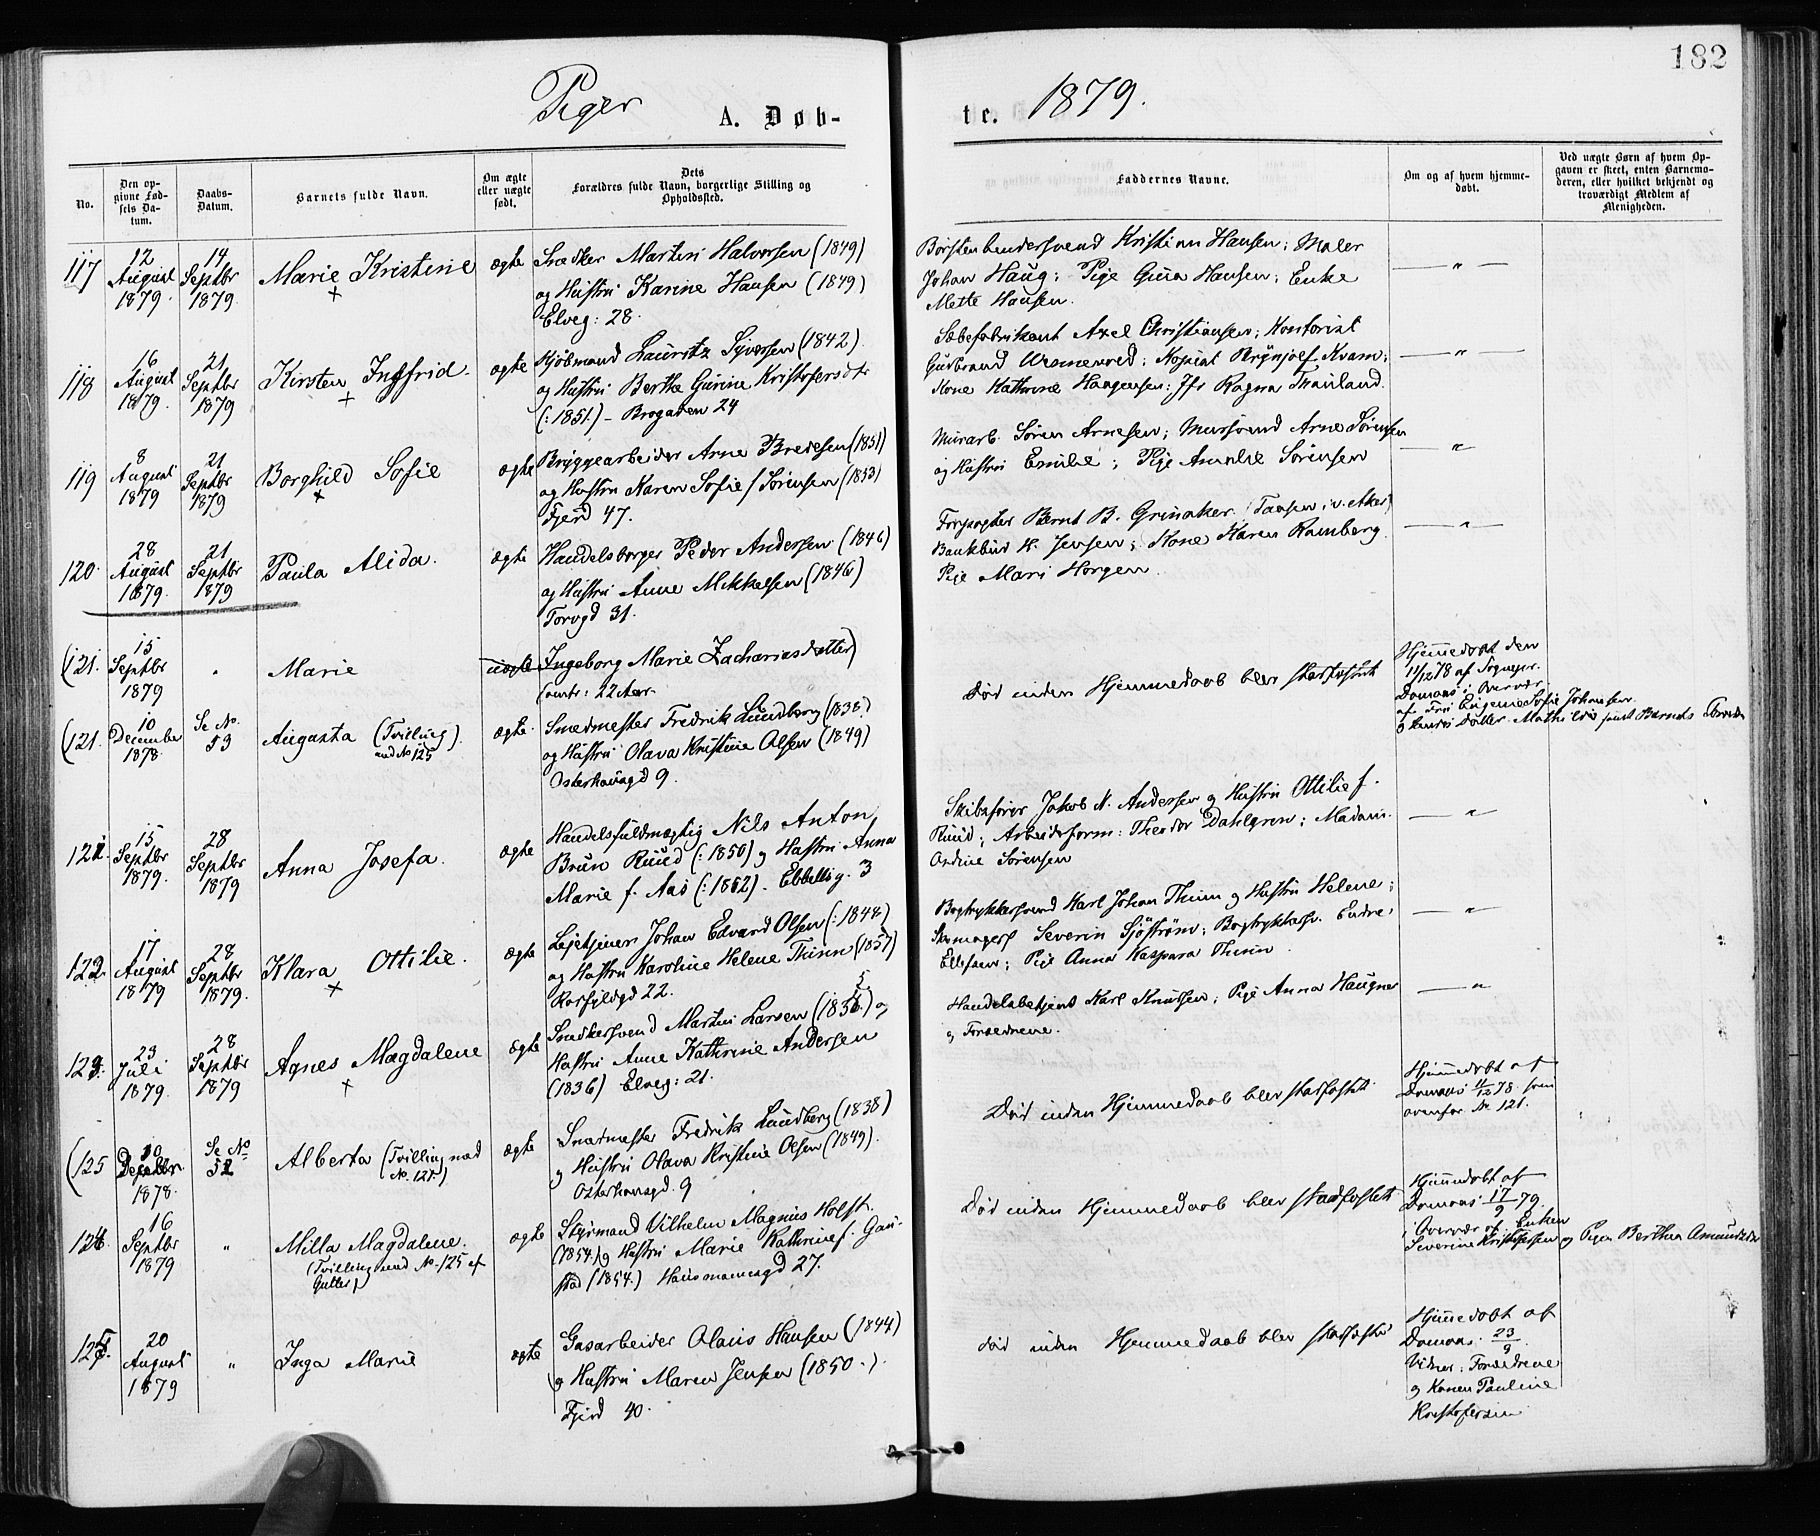 182
Piger
A. Døb-
te.
1879.
No.
Den opgivne Fødsels Datum.
Daabs-Datum.
Barnets fulde Navn.
Om ægte eller uægte født.
Dets Forældres fulde Navn, borgerlige Stilling og Opholdssted.
Faddernes Navne.
Om og af hvem hjemmedøbt.
Ved uægte Børn af hvem Opgaven er skeet, enten Barnemoderen, eller hvilket bekjendt og troværdigt Medlem af Menigheden.
117
12 August 1879.
14 Septbr 1879.
Marie Kristine
ægte
Snedker Martin Halvorsen (1849)
og Hustru Karine Hansen (1849)
Elveg: 28.
Børstenbindersvend Kristian Hansen; Maler
Johan Haug; Pige Gina Hansen; Enke
Mette Hansen.
118
16 August 1879.
21 Septbr 1879
Kirsten Ingfrid
ægte
Kjøbmand Lauritz Syversen (1842)
og Hustru Berthe Gurine Kristofersdtr
(:1851.) - Brogaden 24
Sæbefabrikant Axel Christiansen; Kontorist
Gudbrand ; Kopist Brynjolf Kvam;
Kone Kathrine Haagensen; Jfr Ragna Trauland.
119
8 August 1879
21 Septbr 1879
Borghild Sofie
ægte
Bryggearbeider Arne Bredesen (1851)
og Hustru Karen Sofie f Sørensen (1853)
Fjerd 47.
Murarb. Søren Arnesen; Mursvend Arne Sørensen
og Hustru Emilie; Pige Amalie Sørensen
120.
28 August 1879.
21 Septbr 1879
Paula Alida.
ægte
Handelsborger Peder Andersen (1846)
og Hustru Anne Mikkelsen (1846)
Torvgd 31.
Forpagter Bernt B. Grinaker (Taasen i v. Aker)
Bankbud K. Jensen; Kone Karen Ramberg
Pige Mari Horgen.
(121.
15 Septbr 1879
Marie
uægte
Ingeborg Marie Zachariasdatter)
omtr: 22 Aar.
(121.
10 December 1878
Se No. 53
Augusta (Tvilling med No 125)
ægte.
Smedmester Fredrik Lundberg (1838)
og Hustru Olava Kristine Olsen (1849)
Osterhausgd 9.
Død inden Hjemmedaab blev stadfæstet
Hjemmedøbt den
11/12 78 af Sognepr.
Domaas i Overvær
af Fru Eugenie Sofie Johansen
og hendes Datter Mathilde samt Barnets Forældre
122
15 Septbr 1879.
28 Septbr 1879
Anna Josefa.
ægte
Handelsfuldmægtig Nils Anton
Bruun Ruud (:1850) og Hustru Anna
Marie f. Aas (:1852). Ebbellsg. 3
Skibsfører Jakob N. Andersen og Hustru Ottilie f.
Ruud; Arbeidsform: Theodor Dahlgren; Madam.
Andine Sørensen
122.
17 August 1879
28 Septbr 1879.
Klara Ottilie.
ægte
Leietjener Johan Edvard Olsen (:1848)
og Hustru Karoline Helene Thinn (1857)
Korsfjeldgd 22.
Bogtrykkersvend Karl Johan Thinn og Hustru Helene;
Skomagers Severin Sjöström; Bogtrykkersv. Endre
Ellefsen; Pige Anna Kaspara Thinn.
123.
23 Juli 1879.
28 Septbr 1879
Agnes Magdalene
ægte
Snedkersvend Martin Larsen (1835) og
Hustru Anne Kathrine Andersen
(1836) Elveg: 21.
Handelsbetjent Karl Knutsen; Pige Anna Haugner
og Forældrene.
(125
10 Decbr. 1878.
Se No 52
Alberta (Tvilling med No. 121.)
ægte
Smedmester Fredrik Lundberg (1838)
og Hustru Olava Kristine Olsen (1849).
Osterhausgd. 9
Død inden Hjemmedaab blev stadfæstet.
Hjemmedøbt af
Domaas 11/12 78. som
ovenfor No. 121.
124.
16 Septbr 1879
Milla Magdalene.
(Tvilling med No. 125 af Gutter)
ægte
Styrmand Vilhelm Magnus Holst
(1854.) og Hustru Marie Kathrine f. Gau-
stad (1854.) Hausmannsgd 27.
Død inden Hjemmedaab blev stadfæstet.
Hjemmedøbt af
Domaas 17/9 79
i Overvær af Enken
Severine Kristofersen og Pigen Berthea Amundsdtr
125.
20 August 1879
Inga Marie
ægte
Gasarbeider Olaus Hansen (1844)
og Hustru Maren Jensen (1850.).
Fjerd 40.
død inden Hjemmedaab blev stadfæstet
Hjemmedøbt af
Domaas 23/9
Vidner: Forældrene
og Konen Pauline
Kristofersen